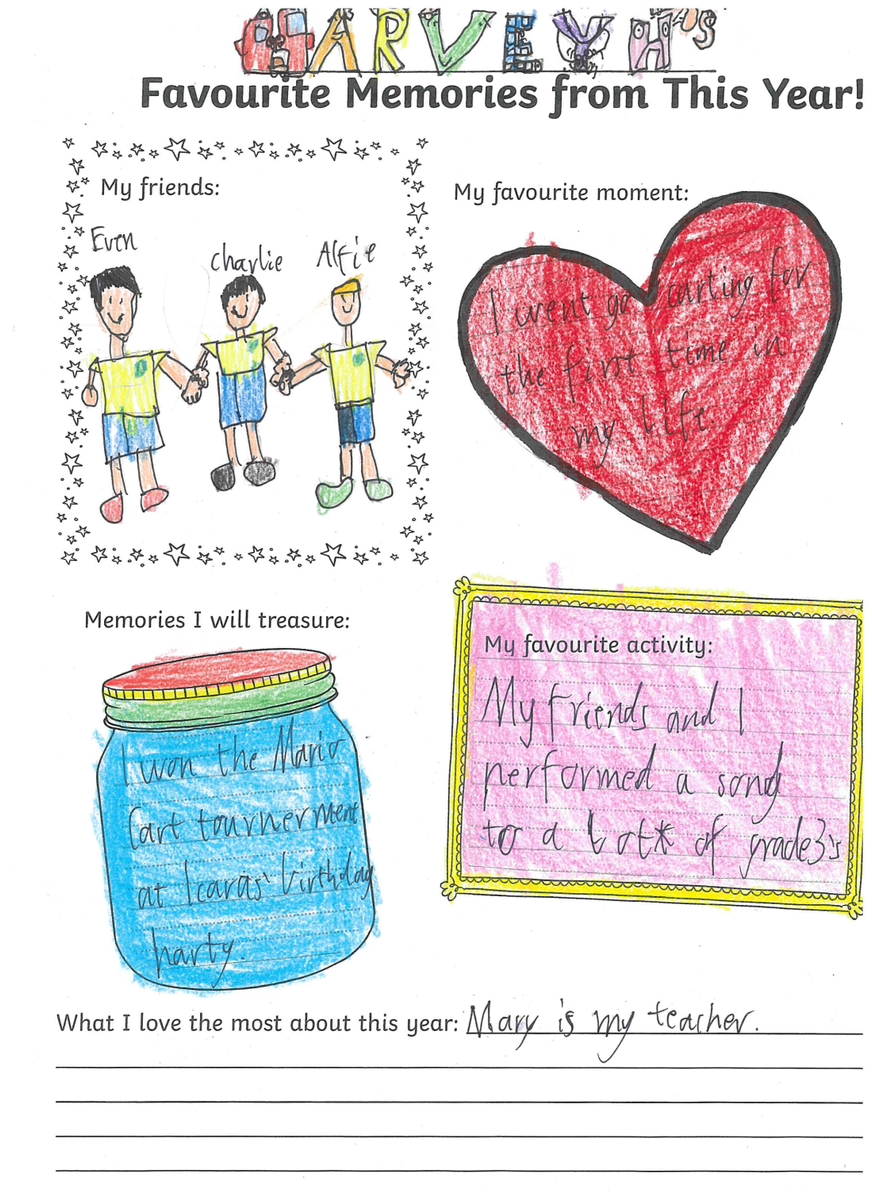 HARVEY H's
Favourite Memories from This Year!
My friends:
Even
charlie
Alfie
My favourite moment:
I went go carting for
the first time in
my life
Memories I will treasure:
I won the Mario
Cart tournerment
at Icaras' birthday
party.
My favourite activity:
My friends and I
performed a song
to a Lot* of grade3's
What I love the most about this year: Mary is my teacher.